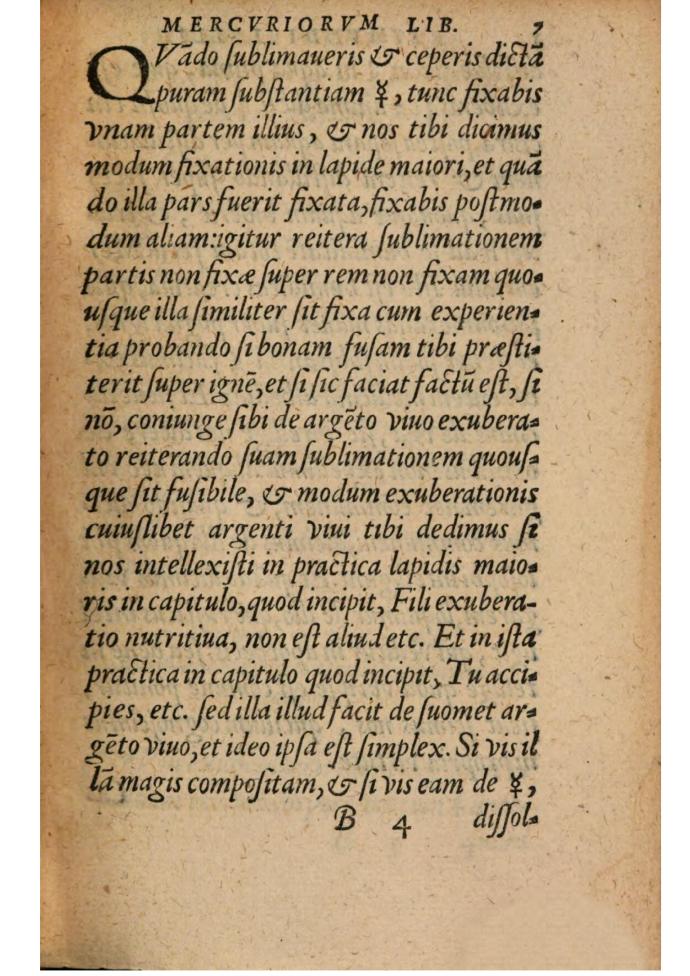 MERCVRIORVM LIB. 7
QVãdo ſublimaueris & ceperis dictã
puram ſubſtantiam ☿, tunc fixabis
vnam partem illius, & nos tibi dicimus
modum fixationis in lapide maiori,et quã
do illa pars fuerit fixata,fixabis poſtmo-
dum aliam:igitur reitera ſublimationem
partis non fixæ ſuper rem non fixam quo-
uſque illa ſimiliter ſit fixa cum experien-
tia probando ſi bonam fuſam tibi præſti-
terit ſuper ignẽ,et ſi ſic faciat factũ eſt, ſi
nõ, coniunge ſibi de argẽto viuo exubera-
to reiterando ſuam ſublimationem quouſ-
que ſit fuſibile, & modum exuberationis
cuiuſlibet argenti viui tibi dedimus ſi
nos intellexiſti in practica lapidis maio-
ris in capitulo,quod incipit, Fili exubera-
tio nutritiua, non eſt aliud etc. Et in iſta
practica in capitulo quod incipit, Tu acci-
pies, etc. ſed illa illud facit de ſuomet ar-
gẽto viuo,et ideo ipſa eſt ſimplex. Si vis il
lã magis compoſitam, & ſi vis eam de ☿,
B 4 diſſol-